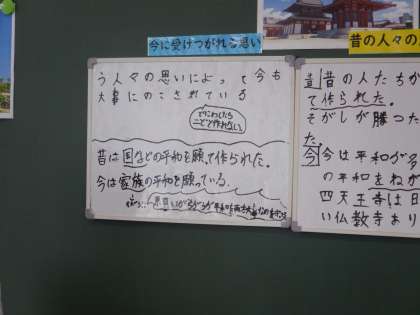 今に受けつがれる思い
う人々の思いによって今も
大事にのこされている
昔は国などの平和を願って作られた。
今は家族の平和を願っている。
昔の人々の
昔の人たちが
て作られた。
そがしが勝った
た。
今 今は平和が
の平和をねが
四天王寺は日
い仏教寺より